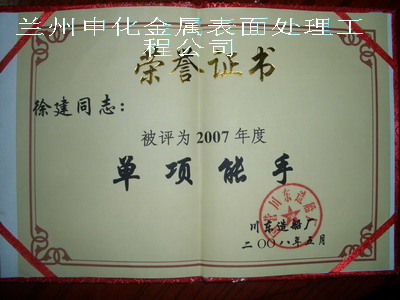 兰州申化金属表面处理工
程公司
荣誉证书
徐建同志:
被评为2007年度
单项能手
川东造船厂
二〇〇八年五月